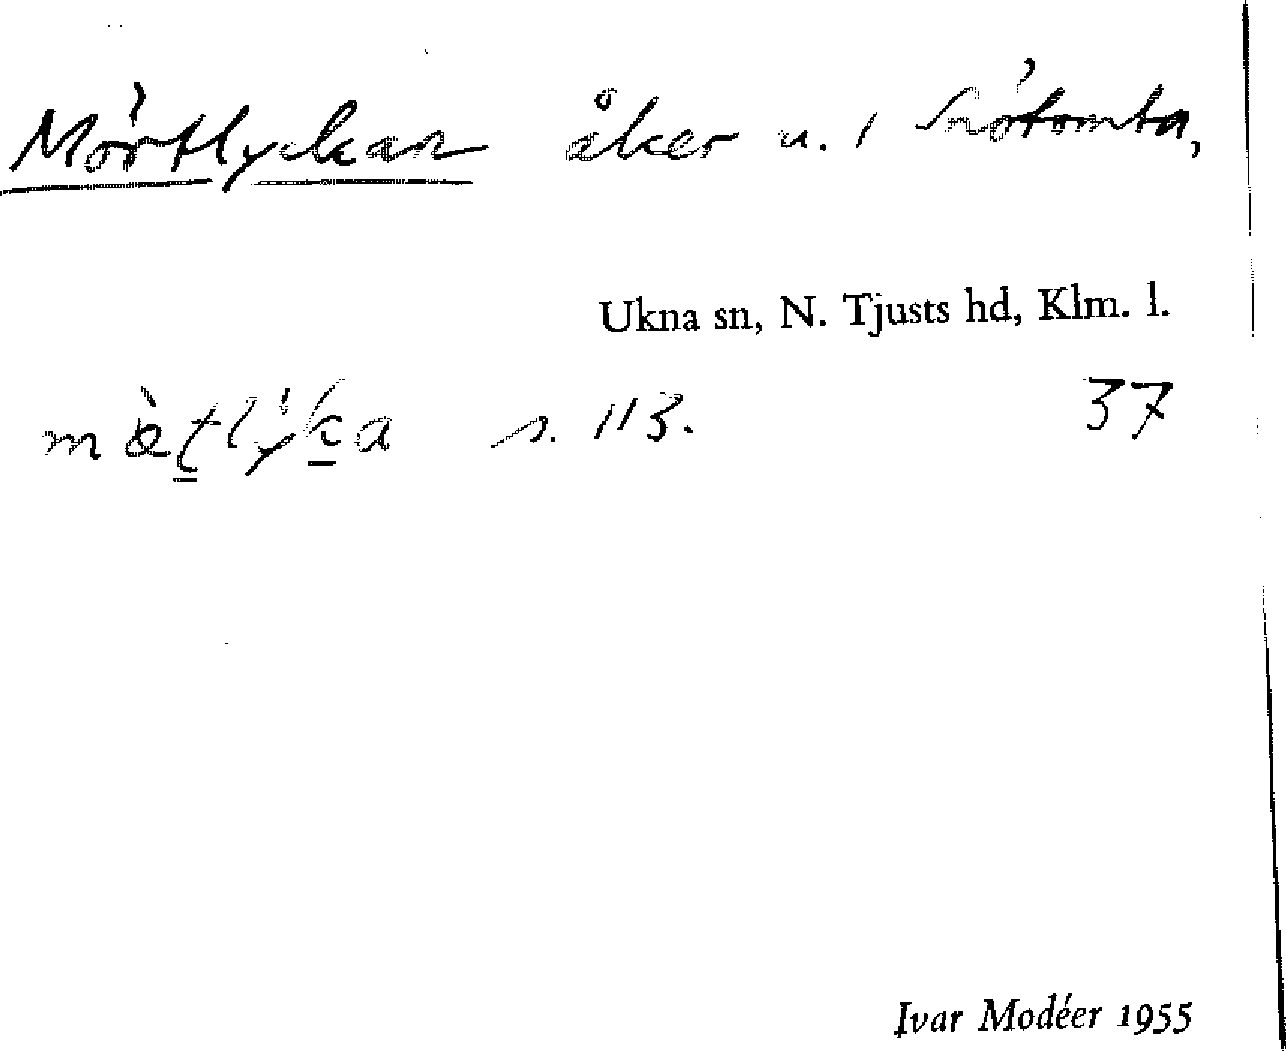 Mörtlyckan åker u. 1 Snötomta,
Ukna sn, N. Tjusts hd, Klm. l.
s. 113. 37
Ivar Modéer 1955